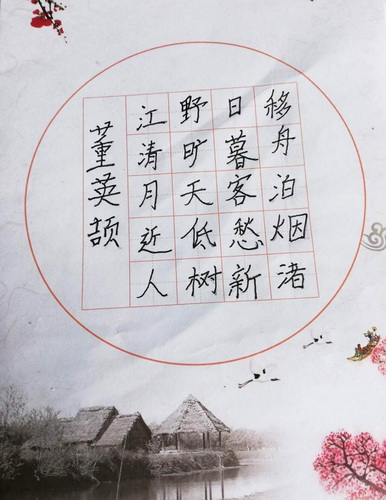 移舟泊烟渚
日暮客愁新
野旷天低树
江清月近人
董英颉